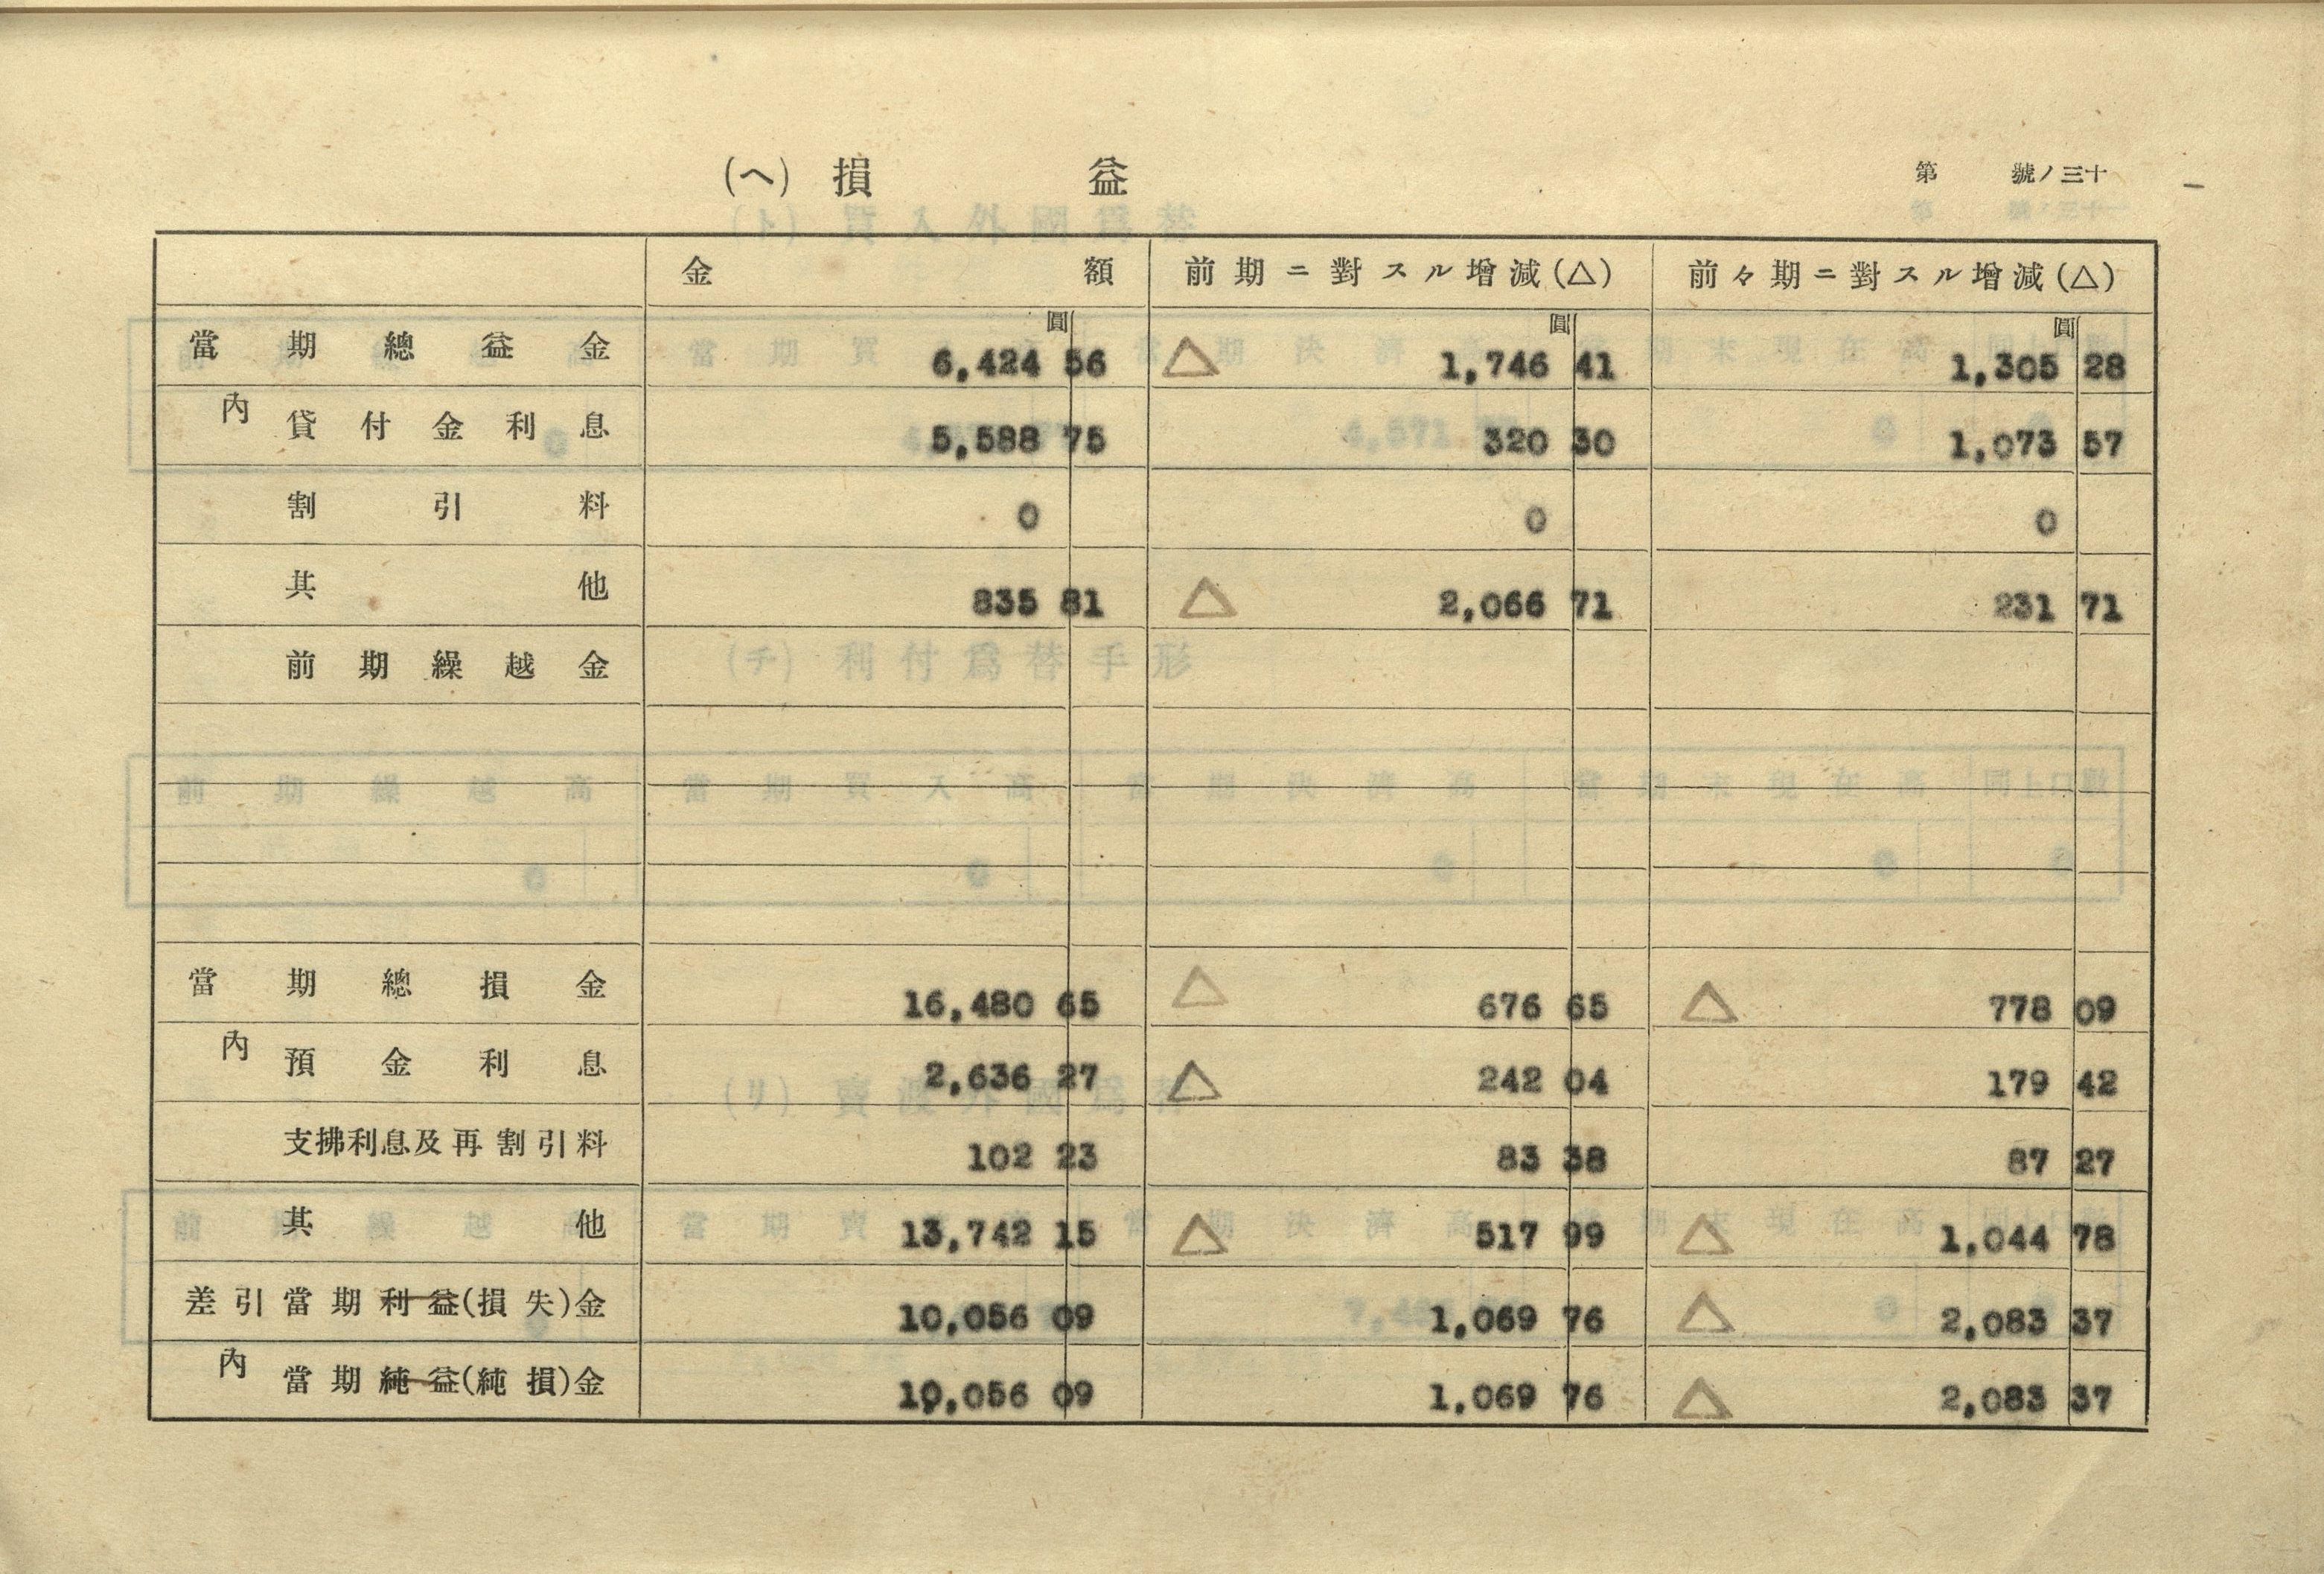 (ヘ) 損益
第 號ノ三十
金額 前期ニ對スル增減(△) 前々期ニ對スル增減(△)
圓 圓 圓
當期總益金 6,424 56 △ 1,746 41 1,305 28
內 貸付金利息 5,588 75 320 30 1,073 57
割引料 0 0 0
其他 835 81 △ 2,066 71 231 71
前期繰越金
當期總損金 16,480 65 △ 676 65 △ 778 09
內 預金利息 2,636 27 △ 242 04 179 42
支拂利息及再割引料 102 23 83 38 87 27
其他 13,742 15 △ 517 99 △ 1,044 78
差引當期利益(損失)金 10,056 09 1,069 76 △ 2,083 37
內 當期純益(純損)金 10,056 09 1,069 76 △ 2,083 37